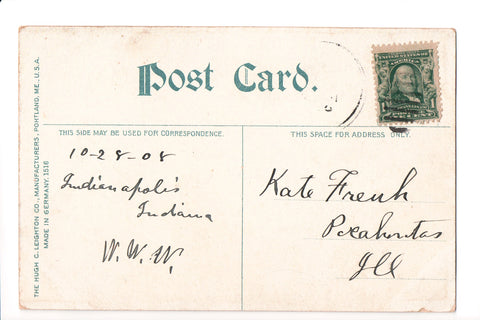 Post Card.
THIS SIDE MAY BE USED FOR CORRESPONDENCE.
THIS SPACE FOR ADDRESS ONLY.
10-28-08
Indianapolis
Indiana
W. W. W.
Kate French
Pocahontas
Ill
THE HUGH C. LEIGHTON CO., MANUFACTURERS, PORTLAND, ME., U.S.A.
MADE IN GERMANY. 1516